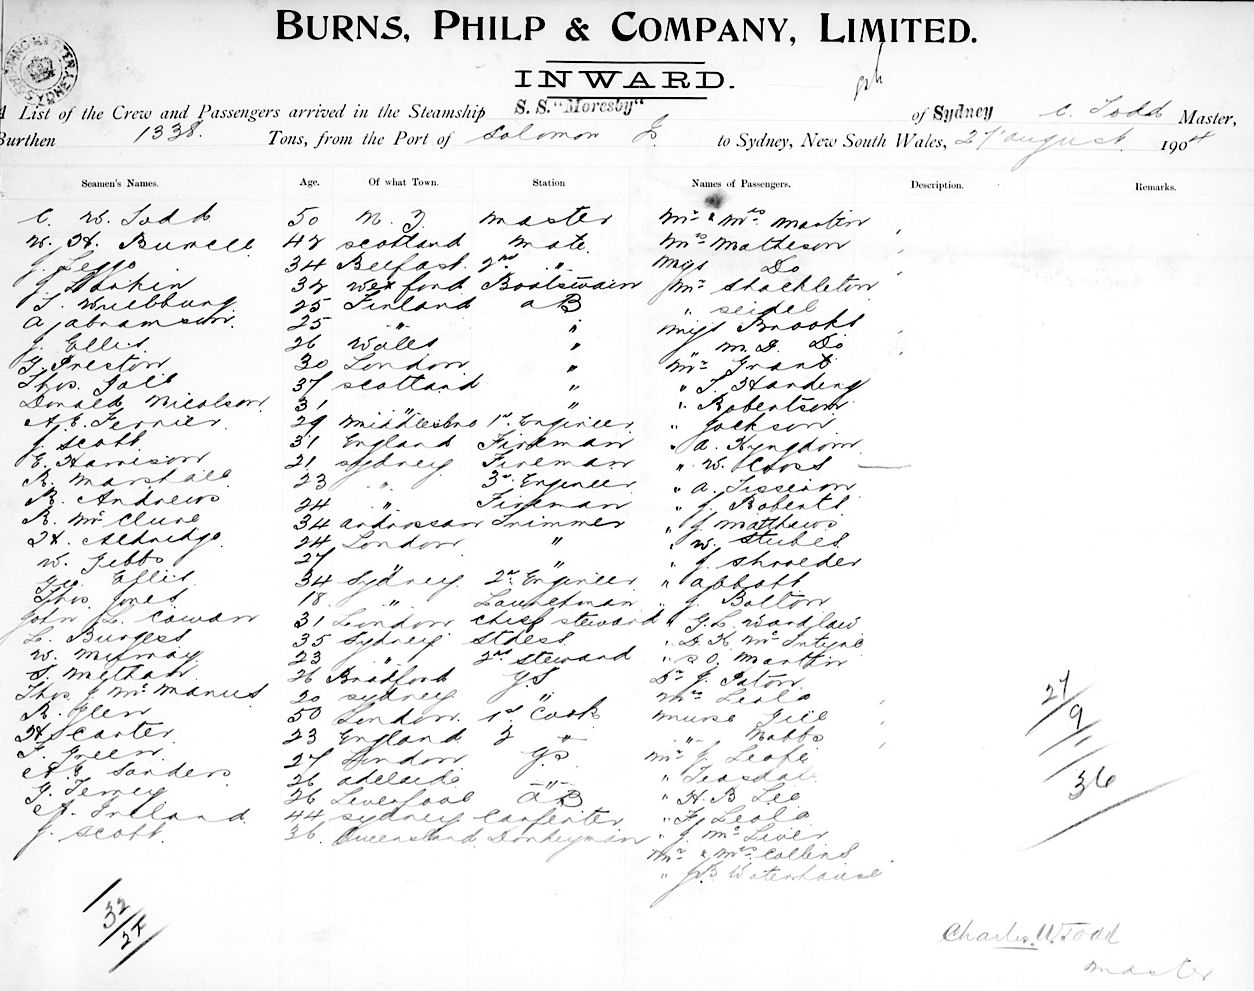 BURNS, PHILP & COMPANY, LIMITED.
INWARD.
A List of the Crew and Passengers arrived in the Steamship S. S. "Moresby" of Sydney C. Todd Master,
Burthen 1338. Tons, from the Port of Solomon Is to Sydney, New South Wales, 27 August 1904
Seamen's Names. Age. Of what Town. Station Names of Passengers. Description. Remarks.
C. W. Todd 50 N. Z. Master Mr & Mrs Martin
W. H. 42 Scotland Mate Mrs Matheson
J. Leggo 34 Belfast 2nd " Miss Do
J 32 Wexford Boatswain Mr Shackleton
T. 25 Finland AB " Seidel
A. Abramson 25 " " Miss Brooks
J. Ellis 26 Wales " " M. D. Do
G. Preston 30 London " Mr Grant
Thos. 37 Scotland " " T. Harding
Donald Nicolson 31 " " " Robertson
A. E. Ferrier 29 Middlesbro 1st Engineer " Jackson
J. Scott 31 England Fireman " A. Kyngdom
E. Harrison 21 Sydney Fireman " W. Cross
R. Marshall 23 " 3rd Engineer " A.
R. Andrews 24 " Fireman " J. Roberts
R. McClure 34 Ardrossan Trimmer " J. Matthews
H. Aldridge 24 London " " W. Stubes
W. Gibbs 27 " " " J. Shroeder
Geo Ellis 34 Sydney 2nd Engineer " Abbott
Thos. Jones 18 " " J. Bolton
John L. Cowan 31 London Chief Steward " G. L. Wardlaw
L. Burgess 35 Sydney Stdess " D. K. McIntyre
W. 23 " 2nd Steward " S. O. Martin
S. 26 Bradford GS Dr J. Paton
Thos. J. McManus 20 Sydney " Mrs
R. Glen 50 London 1st Cook Nurse Gill
H. Carter 23 England 2 " " Mabbs
F. Green 27 London GS Mr J.
A. E. Sanders 26 Adelaide " " Teasdale
G. 26 Liverpool AB " H. B. Lee
A. Ireland 44 Sydney Carpenter " F.
J. Scott 36 Queensland Donkeyman " J.
Mr & Mrs Collins
" J B Waterhouse
27
9
36
32
27
Charles W Todd
Master